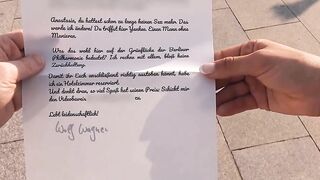 Anastasia, du hattest schon zu lange keinen Sex mehr. Das
werde ich ändern! Du triffst hier Yanther. Einen Mann ohne
Manieren.
Was das wohl hier auf der Grünfläche der Berliner
Philharmonie bedeutet? Ich rechne mit allem, bloß keine
Zurückhaltung.
Damit ihr Euch anschließend richtig austoben könnt, habe
ich ein Hotelzimmer reserviert.
Und denkt dran, so viel Spaß hat seinen Preis: Schickt mir
den Videobeweis.
Lebt leidenschaftlich!
Wolf Wagner